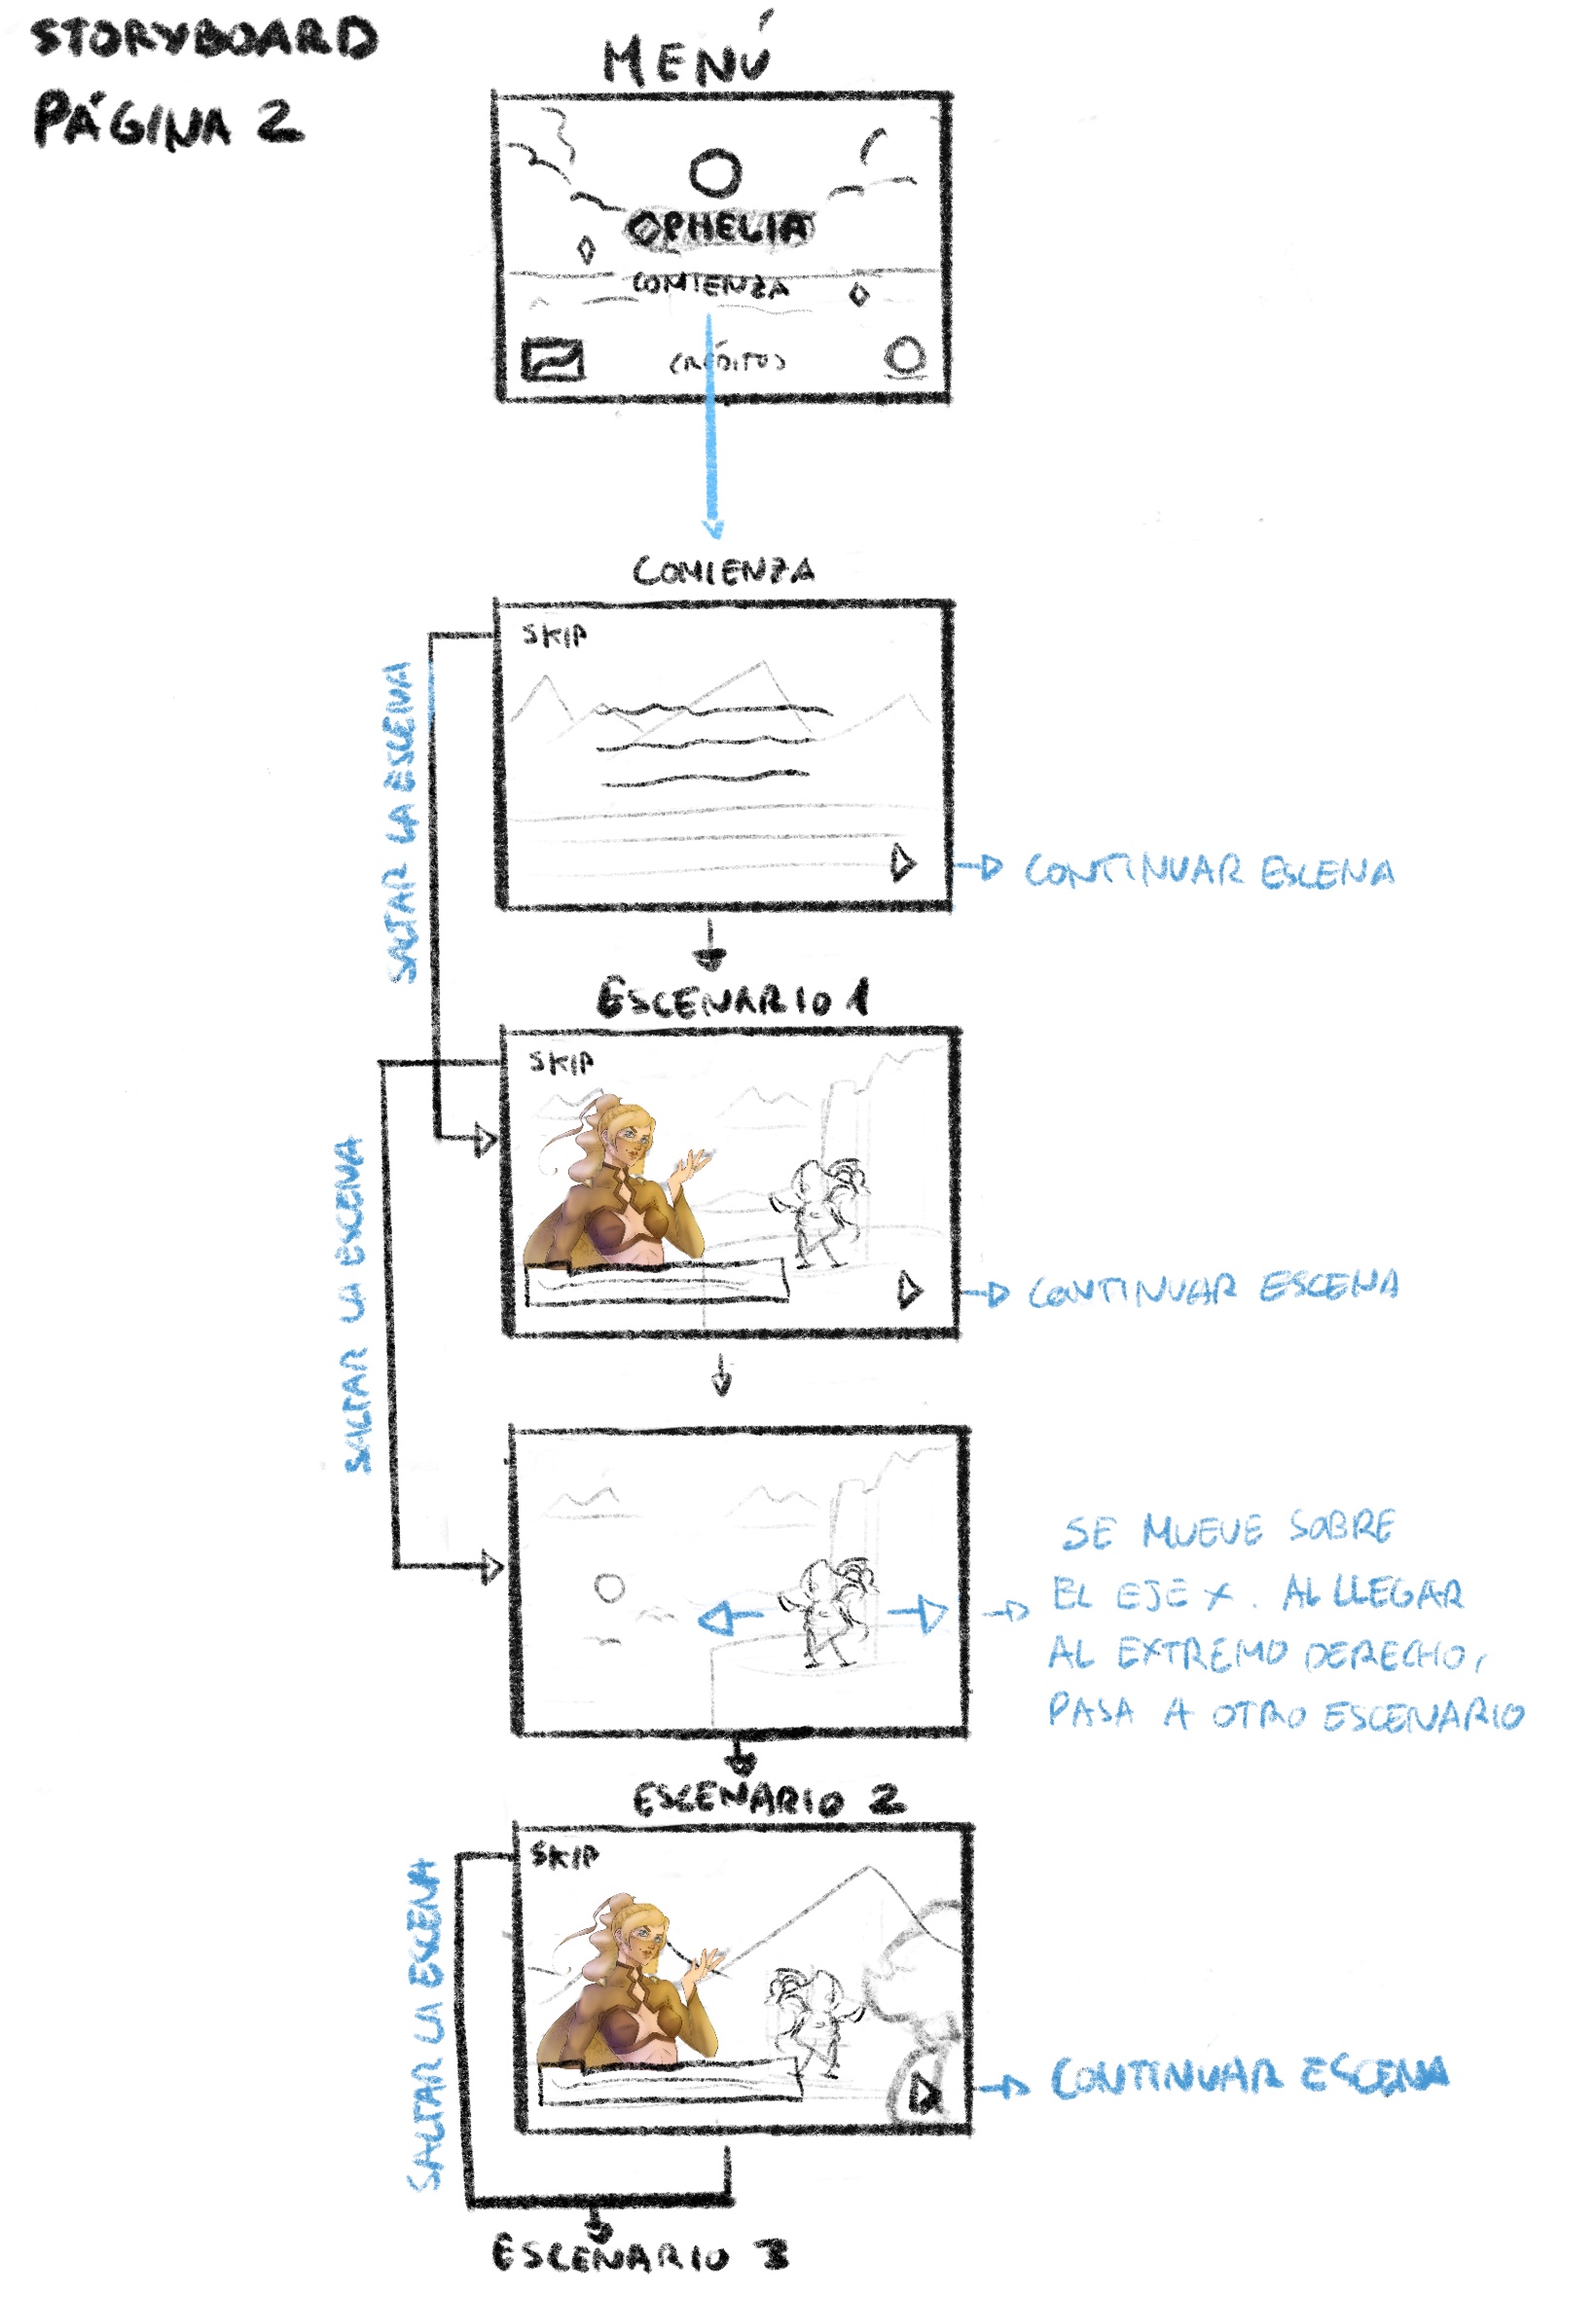 STORYBOARD
PÁGINA 2
MENÚ
OPHELIA
COMIENZA
CRÉDITOS
COMIENZA
SKIP
SALTAR LA ESCENA
CONTINUAR ESCENA
ESCENARIO 1
SKIP
SALTAR LA ESCENA
CONTINUAR ESCENA
SE MUEVE SOBRE
EL EJE X. AL LLEGAR
AL EXTREMO DERECHO,
PASA A OTRO ESCENARIO
ESCENARIO 2
SKIP
SALTAR LA ESCENA
CONTINUAR ESCENA
ESCENARIO 3